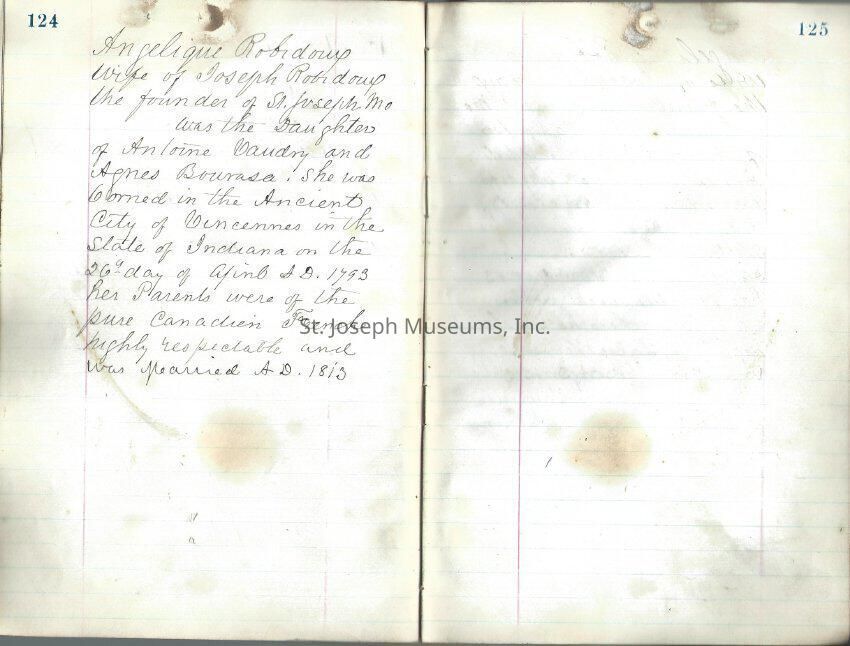 124
Angelique Robidoux
Wife of Joseph Robidoux
the founder of St. Joseph Mo
was the Daughter
of Antoine Vaudry and
Agnes Bourasa. She was
borned in the Ancient
City of Vincennes in the
State of Indiana on the
26th day of April A D. 1793
her Parents were of the
pure Canadien French
highly respectable and
was Married A D. 1813
125
St. Joseph Museums, Inc.